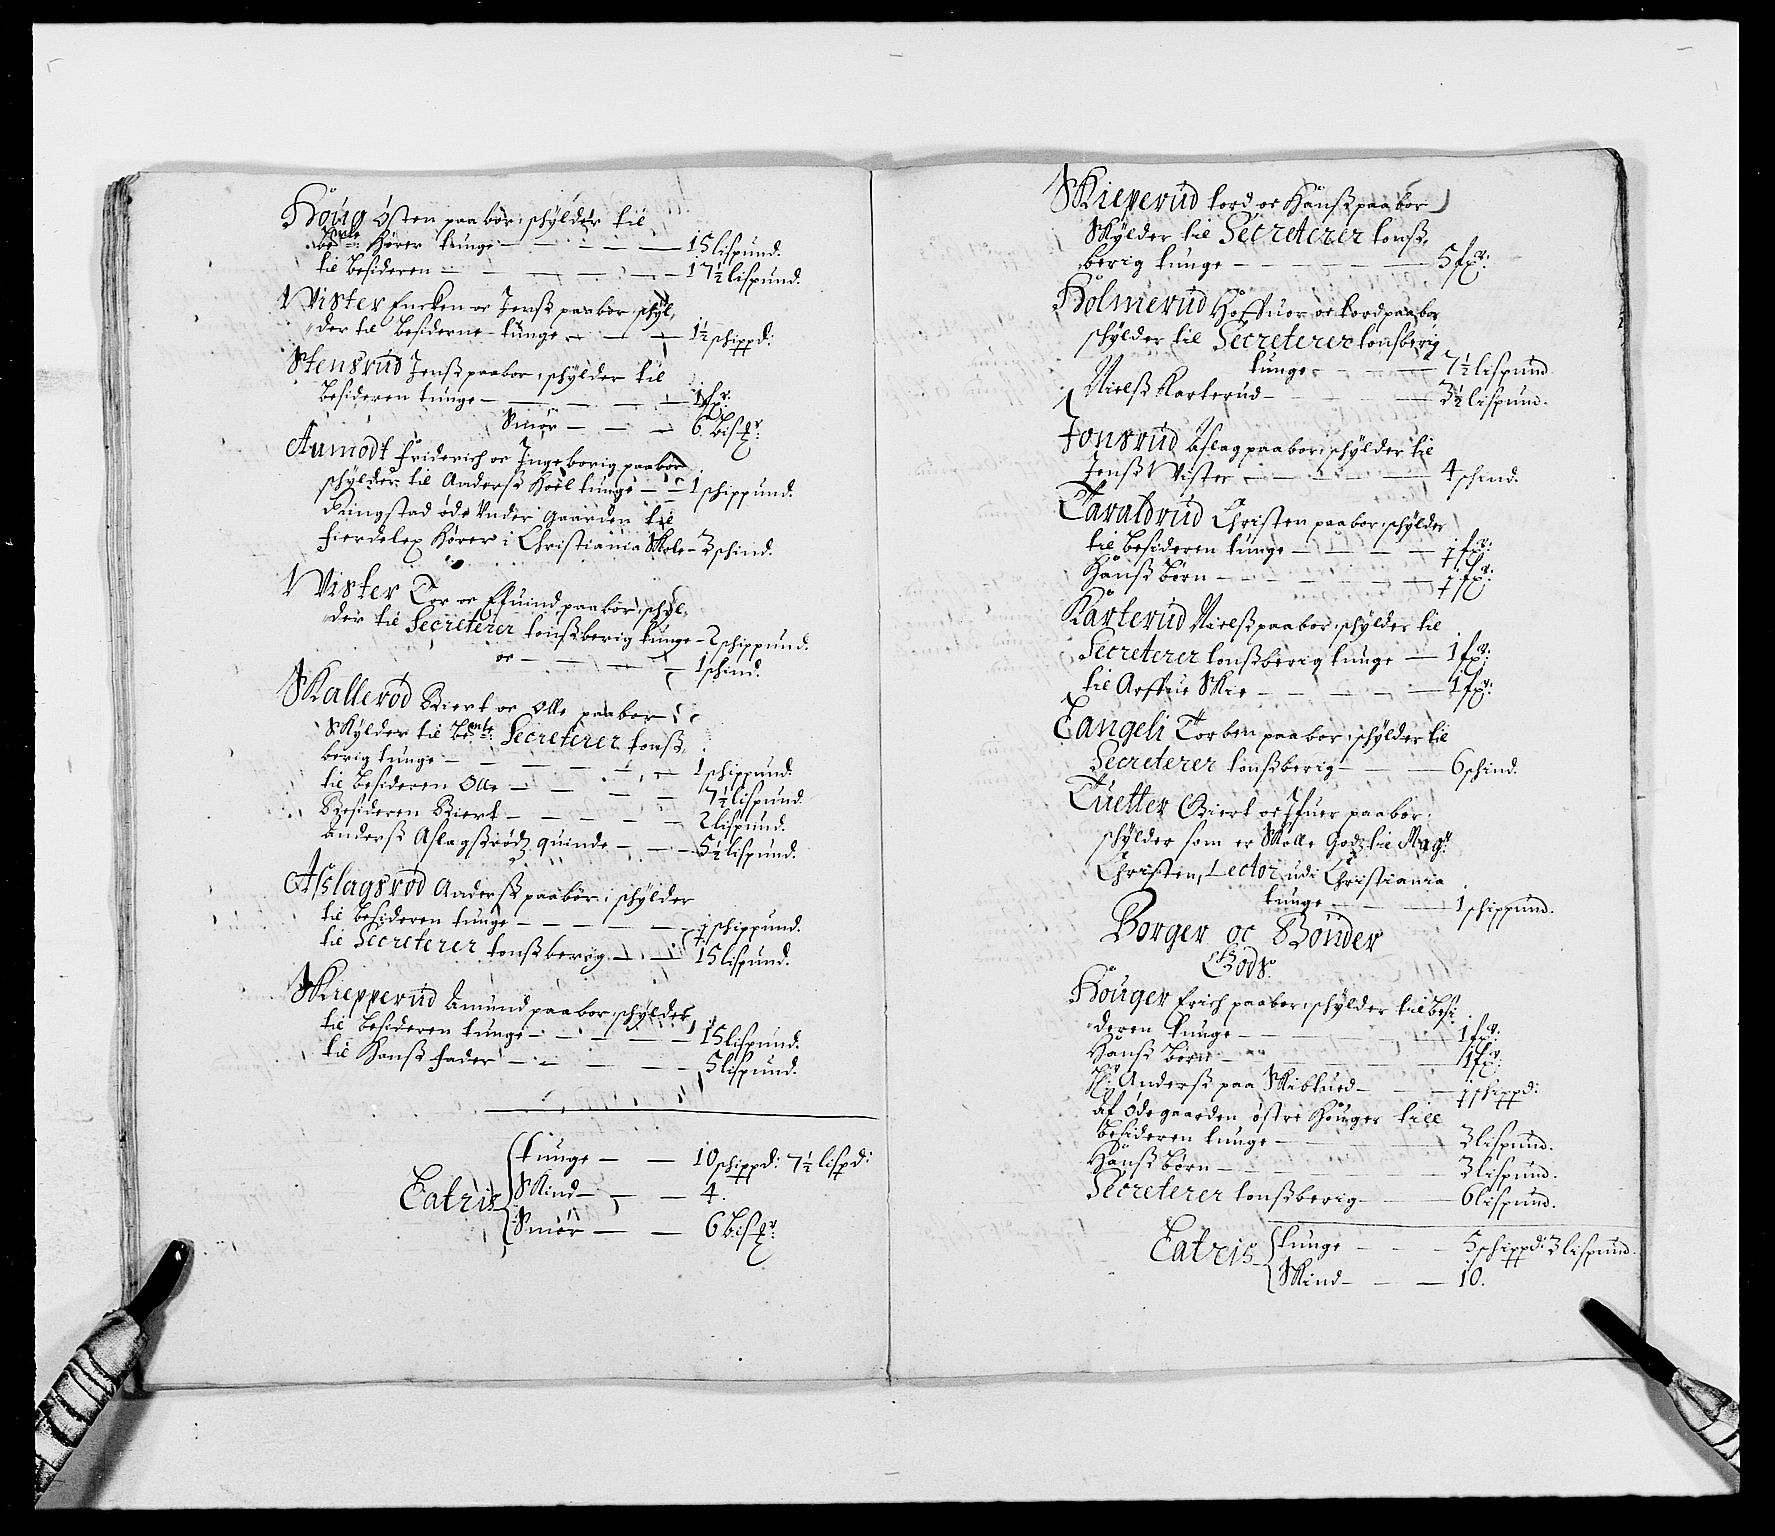 Houg Østen paabor, schylder til
be:te Hører tunge — 15 lispund.
til besideren — 17½ lispund.
Wister Encken oc Jenß paabor schyl,
der til besiderne tunge — 1½ schippd:
Stensrud Jenß paabor, schylder til
besideren tunge — 1 fr:
Smør — 6 Bis℔r:
Aamodt Friderich oc Ingeborig paabor
schylder til Anderß Hoel tunge — 1 schippund.
Ringstad øde under gaarden til
fierdelex Hører i Christiania Skole — 3 schind.
Wister Tor oc Effuind paabor, schyl,
der til Secreterer tonßberig tunge — 2 schippund.
oc — 1 schind.
Skallerød Biert oc Olle paaboer
Skylder til be:te Secreterer tonß,
berig tunge — 1 schippund.
til besideren Olle — 7½ lispund.
Besideren Biert — 2 lispund.
Anderß Aslagßrødz quinde — 5½ lispund.
Asslagsrød Anderß paabor, schylder
til besideren tunge — 1 schippund.
til Secreterer tonßberig — 15 lispund.
Skiepperud Amund paaboer, schylder
til besideren tunge — 15 lispund.
til Hanß fader — 5 lispund.
tunge — 10 schippd: 7½ lispd:
Latris Skind — 4.
Smør — 6 Bis℔r:
Skieperud tord oc Hanß paaboer
Skylder til Secreterer tonß,
berig tunge — 5 fr:
Holmerud Hoffuor oc tord paaboer
schylder til Secreterer tonsberig
tunge — 7½ lispund
Nielß Karterud — 3½ lispund.
Jonsrud Aslag paaboer, schylder til
Jenß Wister — 4 schind.
Taraldrud Christen paaboer, schylder
til besideren tunge — 1 fr:
Hanß børn — 1 fr:
Karterud Nielß paaboer, schylder til
Secreterer tonßberig tunge — 1 fr:
til Arffue Skie — 1 fr:
Langeli Torben paaboer, schylder til
Secreterer tonßberig — 6 schind.
Tuetter Biert oc Ifuer paaboer,
schylder som er Skolle Godz til Magr:
Christen, Lector udi Christiania
tunge — 1 schippund.
Borger oc Bønder
Godz.
Houger Erich paaboer, schylder til besi,
deren tunge — 1 fr:
Hanß børn — 1 fr:
Anderß paa Skiblued — 1 schippd:
Af øde gaarden østre Houger till
besideren tunge — 3 lispund.
Hanß børn — 3 lispund.
Secreterer tonßberig — 6 lispund.
Latris tunge — 5 schippd: 3 lispund.
Skind — 10.